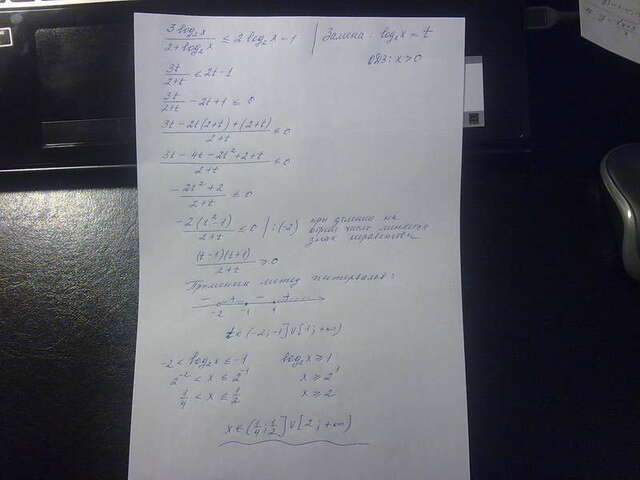 3log₂x / 2+log₂x ≤ 2log₂x - 1 | Замена: log₂x = t
ОДЗ: x > 0
3t / 2+t ≤ 2t-1
3t / 2+t - 2t+1 ≤ 0
3t-2t(2+t)+(2+t) / 2+t ≤ 0
3t-4t-2t²+2+t / 2+t ≤ 0
-2t²+2 / 2+t ≤ 0
-2(t²-1) / 2+t ≤ 0 | :(-2) при делении на
число меняется
знак неравенства
(t-1)(t+1) / 2+t ≥ 0
Применим метод интервалов:
- + - +
-2 -1 1
t ∈ (-2; -1] ∪ [1; +∞)
-2 < log₂x ≤ -1 log₂x ≥ 1
2⁻² < x ≤ 2⁻¹ x ≥ 2¹
1/4 < x ≤ 1/2 x ≥ 2
x ∈ (1/4; 1/2] ∪ [2; +∞)